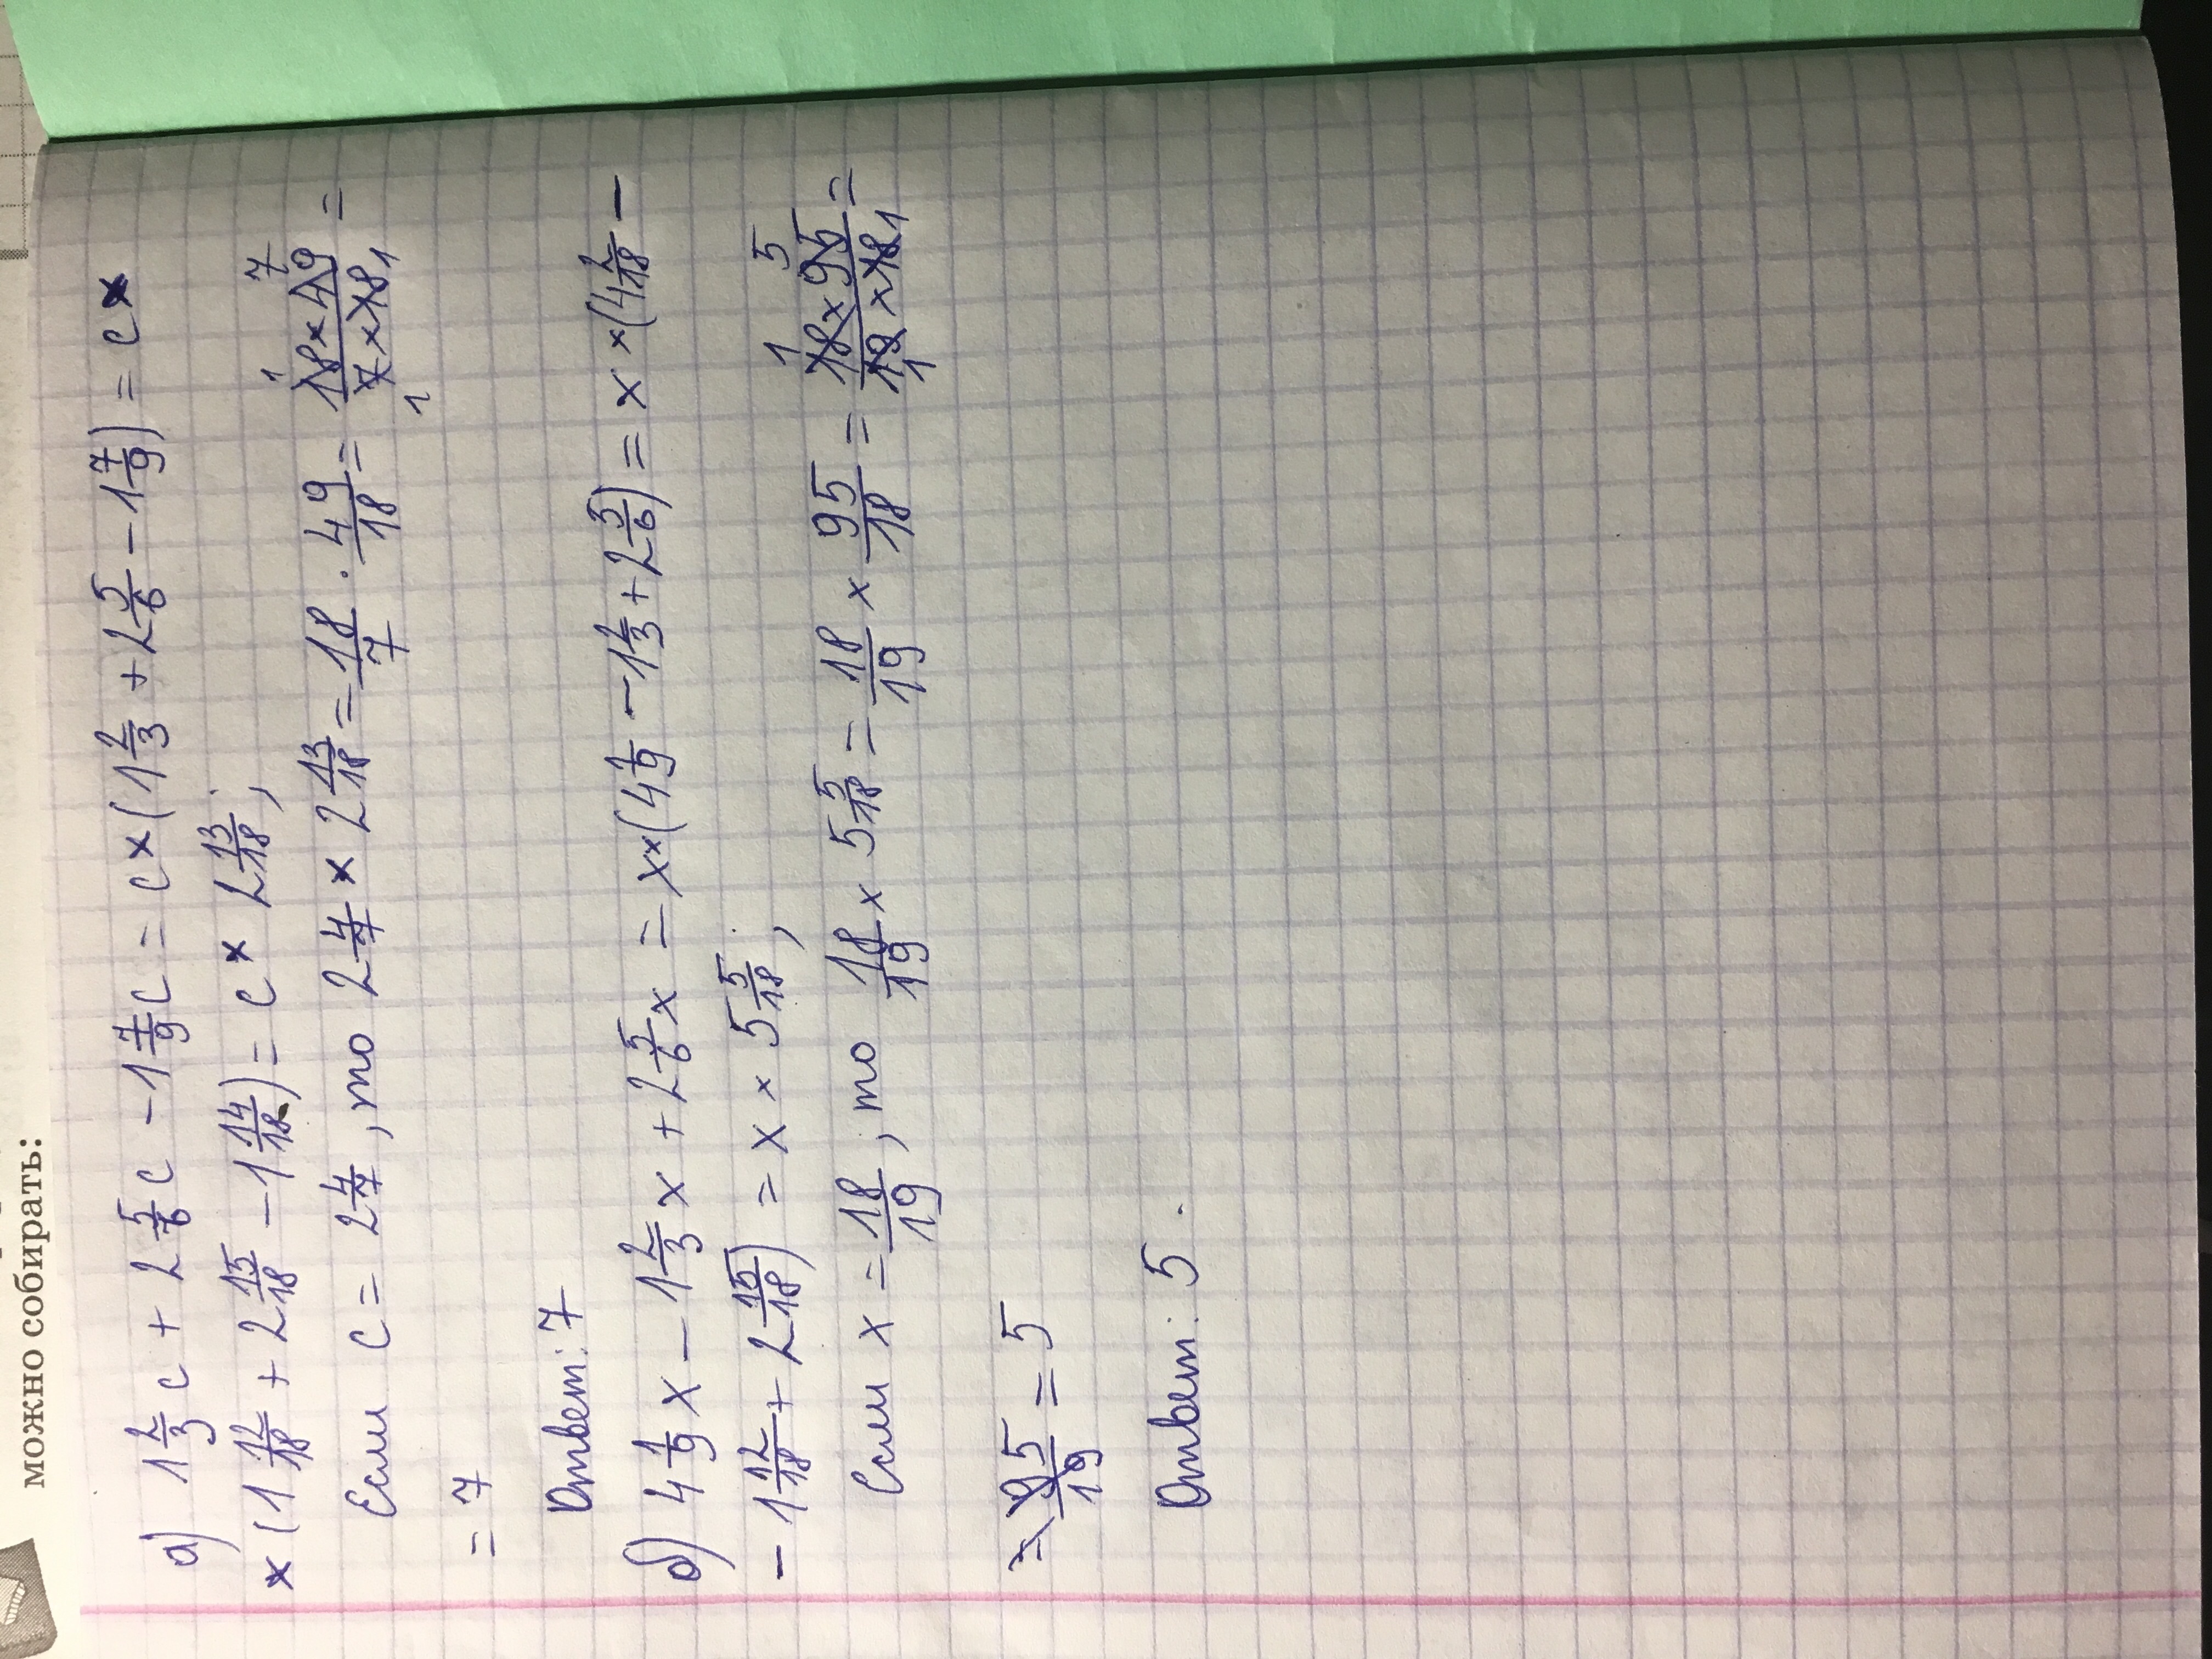 можно собирать:
а) 1 2/3 c + 2 5/6 c - 1 7/9 c = c × (1 2/3 + 2 5/6 - 1 7/9) = c ×
× (1 12/18 + 2 15/18 - 1 14/18) = c × 2 13/18;
Если c = 2 4/7, то 2 4/7 × 2 13/18 = 18/7 · 49/18 = 18 × 49 / 7 × 18 =
= 7
Ответ: 7
б) 4 1/9 x - 1 2/3 x + 2 5/6 x = x × (4 1/9 - 1 2/3 + 2 5/6) = x × (4 2/18 -
- 1 12/18 + 2 15/18) = x × 5 5/18;
Если x = 18/19, то 18/19 × 5 5/18 = 18/19 × 95/18 = 18 × 95 / 19 × 18 =
= 95/19 = 5
Ответ: 5.